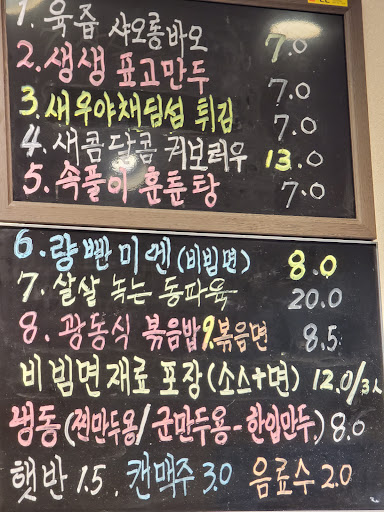 1. 육즙 샤오롱바오 7.0
2. 생생 표고만두 7.0
3. 새우야채딤섬 튀김 7.0
4. 새콤닥콤 꿔보러우 13.0
5. 속풀이 훈툰탕 7.0
6. 량빤미엔 (비빔면) 8.0
7. 살살 녹는 동파육 20.0
8. 광동식 볶음밥 9. 볶음면 8.5
비빔면재료 포장 (소스+면) 12.0/3人
냉동(찐만두용/군만두용-한입만두.) 8.0
햇반 1.5. 캔맥주 3.0 음료수 2.0